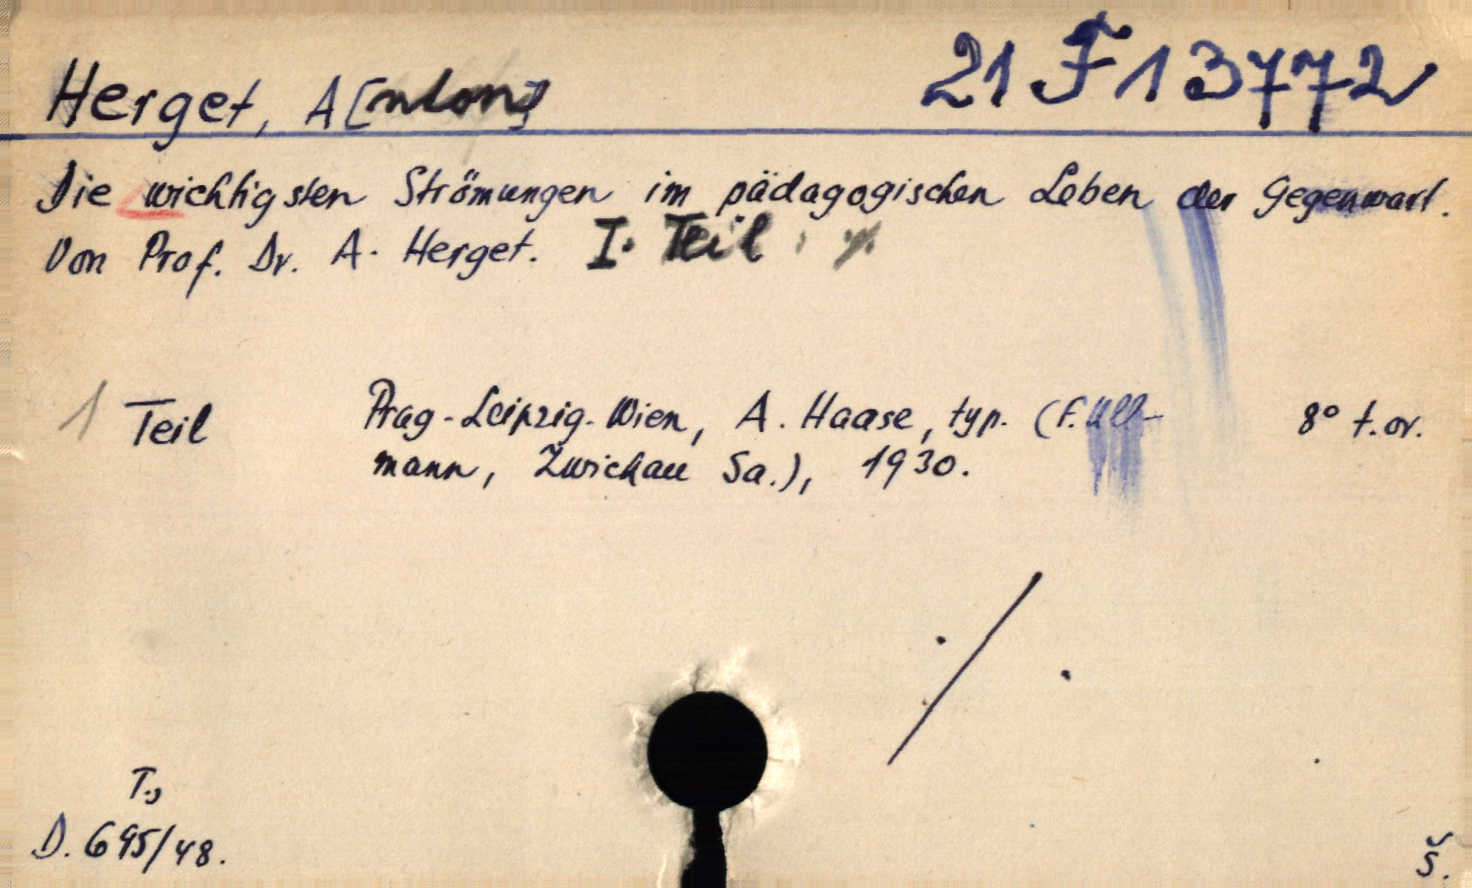 21 F 13772
Herget, A[nton]
Die wichtigsten Strömungen im pädagogischen Leben der Gegenwart.
Von Prof. Dr. A. Herget. I. Teil
1 Teil Prag-Leipzig-Wien, A. Haase, typ. (F. Ull-
mann, Zwickau Sa.), 1930. 8° t.or.
./.
T.,
D. 695/48.
Š.